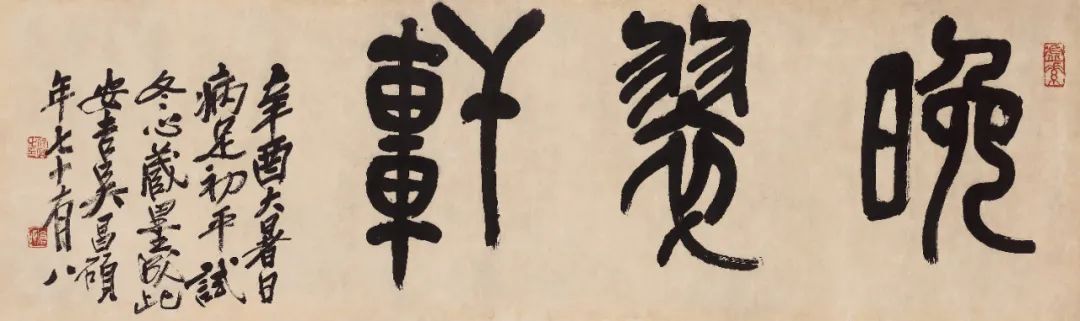 晚翠軒
辛酉大暑日
病足初平試
冬心藏墨成此
安吉吳昌碩
年七十有八